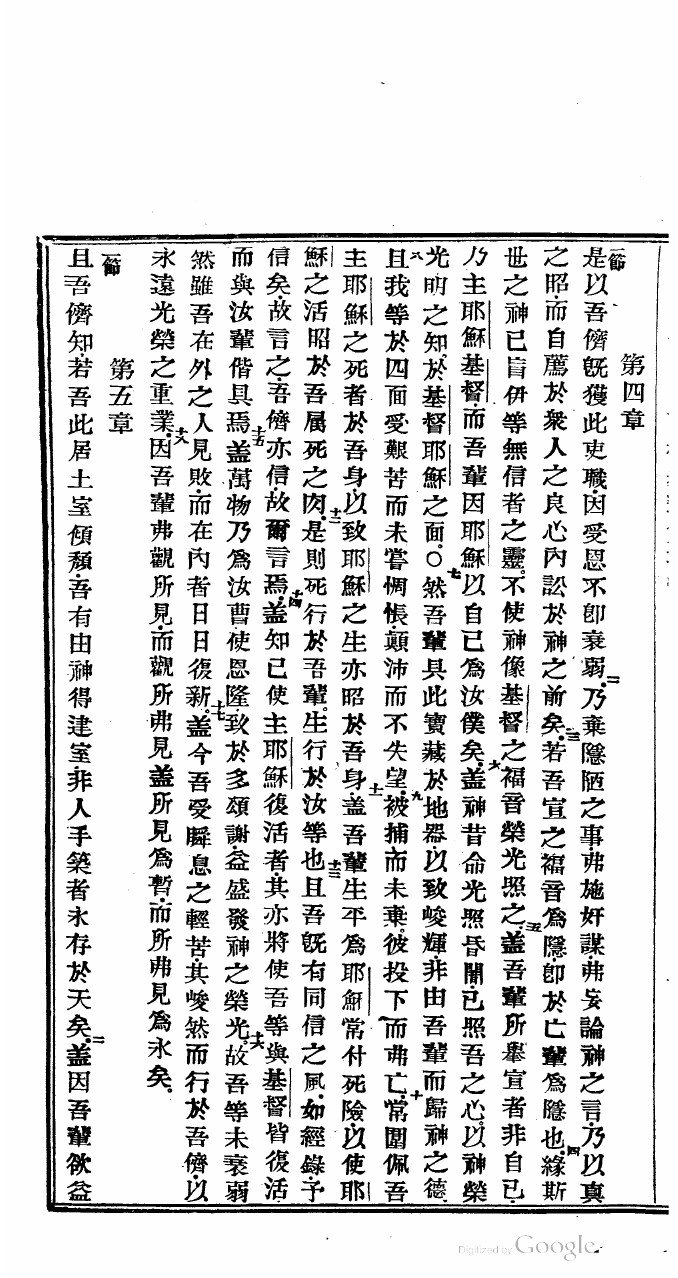 第四章
一節 是以吾儕旣獲此吏職因受恩不卽衰弱二乃棄隱陋之事弗施奸謀弗妄論神之言乃以眞
之昭而自薦於衆人之良心內訟於神之前矣三若吾宣之福音爲隱卽於亡輩爲隱也四緣斯
世之神已盲伊等無信者之靈不使神像基督之福音榮光照之五盖吾輩所舉宣者非自己
乃主耶穌基督而吾輩因耶穌以自己爲汝僕矣六盖神昔命光照昏闇已照吾之心以神榮
光明之知於基督耶穌之面○七然吾輩具此寶藏於地器以致峻輝非由吾輩而歸神之德
八且我等於四面受艱苦而未甞惆悵顛沛而不失望九被捕而未棄彼投下而弗亡十常圍佩吾
主耶穌之死者於吾身以致耶穌之生亦昭於吾身十一盖吾輩生平爲耶穌常付死險以使耶
穌之活昭於吾屬死之肉十二是則死行於吾輩生行於汝等也十三且吾旣有同信之風如經錄予
信矣故言之吾儕亦信故爾言焉十四盖知已使主耶穌復活者其亦將使吾等與基督皆復活
而與汝輩偕具焉十五盖萬物乃爲汝曹使恩隆致於多頌謝益盛發神之榮光十六故吾等未衰弱
然雖吾在外之人見敗而在內者日日復新十七盖今吾受瞬息之輕苦其峻然而行於吾儕以
永遠光榮之重業十八因吾輩弗觀所見而觀所弗見盖所見爲暫而所弗見爲永矣
第五章
一節 且吾儕知若吾此居土室傾頽吾有由神得建室非人手築者永存於天矣二盖因吾輩欲益
Digitized by Google